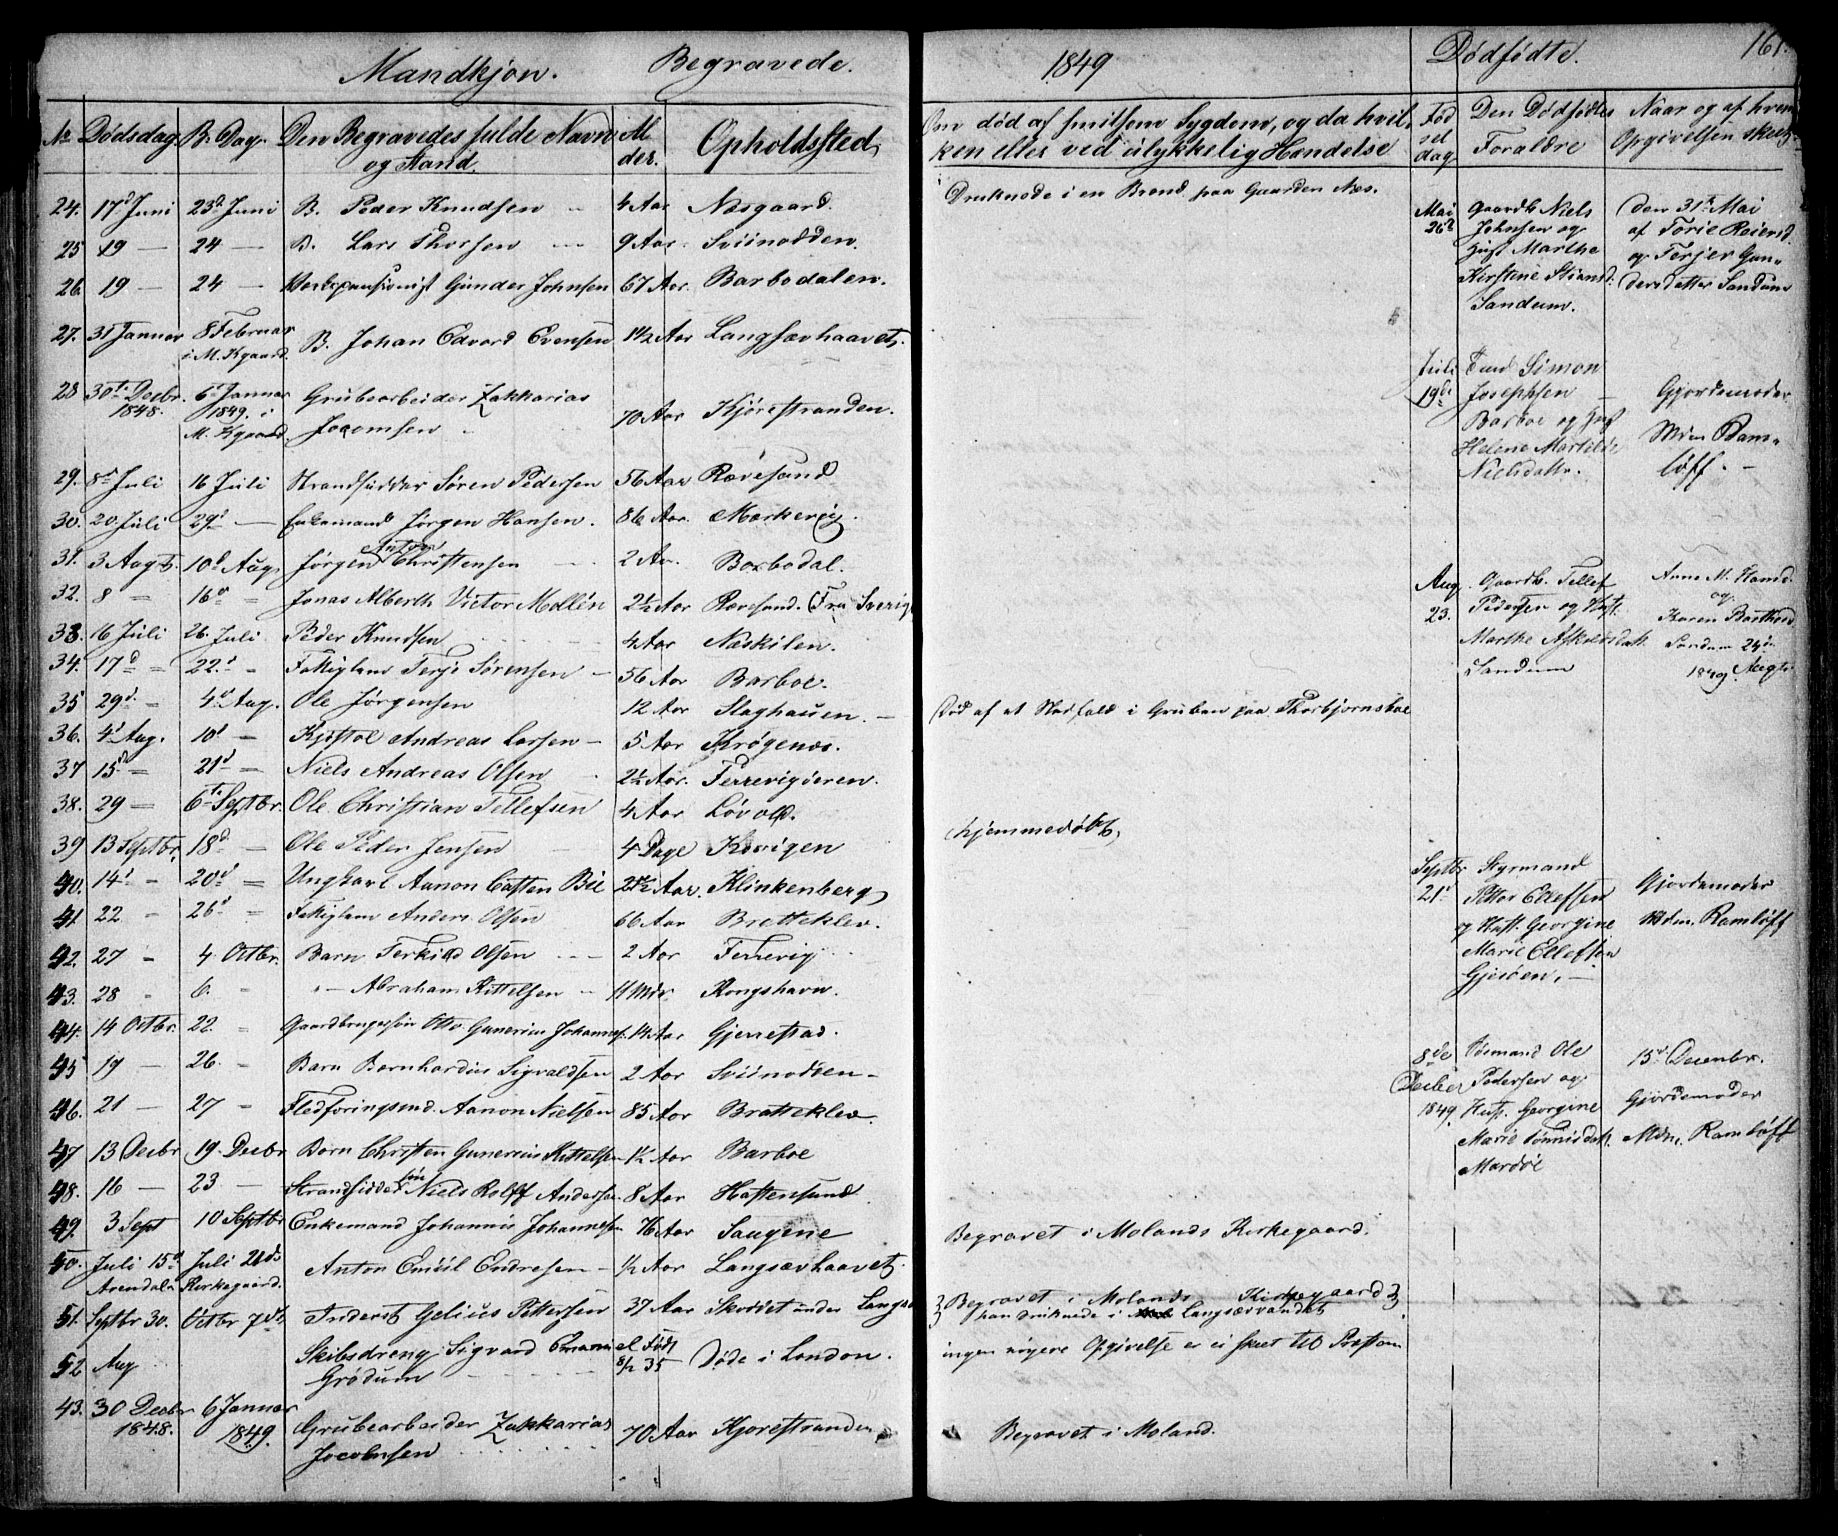 Mandkjøn. Begravede. 1849 Dødfødte. 161.
Nr Dødsdag B. Dag. Den Begravedes fulde Navn og Stand. Alder. Opholdssted. Om død af smitsom Sygdom, og da hvilken eller ved ulykkelig Hændelse Fødseldag Den Dødfødtes Forældre Naar og af hvem Opgivelsen skeet
24. 17d Juni 23d Juni B. Peder Knudsen 4 Aar Næsgaard. Druknede i en Brønd paa Gaarden Næs.
25 19 — 24 — B. Lars Thorsen 9 Aar. Sviinodden.
26. 19 — 24 — Verkspensionist Gunder Johnsen 67 Aar. Barbodalen.
27. 31 Januar 8 Februar i M. Kgaard. B. Johan Edvard Evensen 1 1/2 Aar Langsævhaavet.
28 30te Decbr. 1848. 6te Januar 1849. i M. Kgaard. Grubearbeider Zakkarias Jocomsen 70 Aar Kjørestranden.
29. 8de Juli 16 Juli Strandsidder Søren Pedersen 56 Aar Rævesand
30. 20 Juli 29d — Enkemand Jørgen Hansen. 86 Aar. Mærkevig.
31. 3 Augt. 10d Aug. Jørgen Anton Christensen 2 Aar. Barbodal.
32. 8 = 16de = Jonas Alberth Victor Medlén 2 1/2 Aar Rævesand. (Fra Sverig
33. 16 Juli 26. Juli. Peder Knudsen 4 Aar Næskilen.
34. 17d = 22d = Fattiglem Terje Sørensen 56 Aar Barboe.
35 29d. — 4de Aug. Ole Jørgensen 12 Aar Slaghauen. — Død af et Nedfald i Gruben paa Thorbjørnsboe
36. 4d Aug. 10d = Kjøstol Andreas Larsen — 5 Aar Krøgenes.
37 15d = 21d = Niels Andreas Olsen 2 1/2 Aar. Terrevigøeren.
38. 29 = 6te Septbr. Ole Christian Tellefsen 4 Aar Løvold.
39 13 Septbr. 18d. — Ole Peder Jensen 4 Dage Kavigen hjemmedøbt,
40. 14d - 20d = Ungkarl Aanon Casten Bie 21 1/2 Aar. Klinkenberg
41. 22 - 26d = Fattiglem Anders Olsen 66 Aar Bratteklev.
42. 27 - 4. Octbr. Barn Terkild Olsen 2 Aar Terrevig
43. 28 - 6. - " — Abraham Kittelsen 11 Mdr. Kongshavn.
44. 14 Octbr. 22. " Gaardbrugersøn Otto Gunerius Johannes. 14 Aar Gjerrestad.
45 19 — 26. - Barn Bernhardus Sigvaldsen 2 Aar Sviinodden —
46. 21 — 27 - Fledføringsmd. Aanon Nielsen 85 Aar Bratteklev.
47 13 Decbr 19. Decbr Barn Christen Gunerius Kittelsen 1 1/2 Aar Barboe
48. 16 — 23 — Strandsidder søn Niels Rolff Andersen 8 Aar Hastensund.
49. 3 Sept 10 Septbr Enkemand Johannis Johannesen 76 Aar Saugene Begravet i Molands Kirkegaard.
50. Juli 15d Juli 21de Arendals Kirkegaard. Anton Emiil Endresen — 1/2 Aar Langsævhaavet.
51. Septbr 30. Octbr 7de Inderst Gelius Pettersen 37 Aar Skoddet under Langsæ } Begravet i Molands Kirkegaard }
han druknede i Langsævvandet
52 Aug Skibsdreng Sigvard Emanuel Grødum Født 8/12 35 Døde i London. ingen nøyere Opgivelse er ei skeet til Præsten
43. 30 Decbr 1848. 6 Januar 1849. Grubearbeider Zakkarias Jocobnsen 70 Aar Kjorestranden Begravet i Moland.
Mai 26d Gaardb. Niels Johnsen og Hust Marthe Kirstene Sandum. den 31te Mai af Torie Reiersd. og Terjer Gundersdatter Sandum
Juli 19de Simon Josephsen Barboe og Hust Helene Martilde Nielsdattr. Gjordemoder Mdm Ramløff. —
Aug. 23. Gaardb. Tellef Pedersen og Hust. Marthe Askelsdatt Sandum Anne M. og Karen Sandum 24de Augt. 1849
Septbr 21d Styrmand Petter Ellefsen og Hust. Georgine Marie Ellefsen Gjesøen. — Gjordemoder Mdm. Ramløff
8de Decber 1849. Sømand Ole Pedersen og Hust. Georgine Marie Tønnisdatt. Mardøe 15d Decenbr. Gjordemoder Mdm. Ramløff